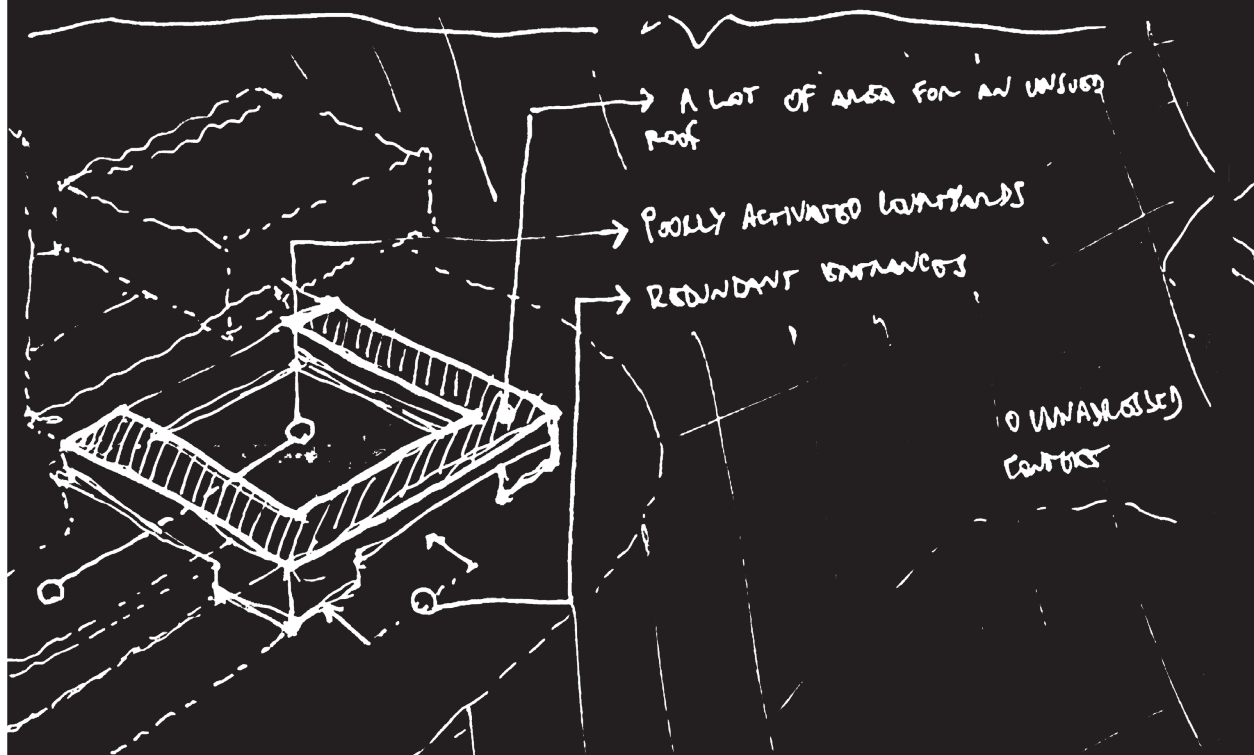 A LOT OF AREA FOR AN UNSUED
ROOF
POORLY ACTIVATED COURTYARDS
REDUNDANT ENTRANCES
UNNADRESSED